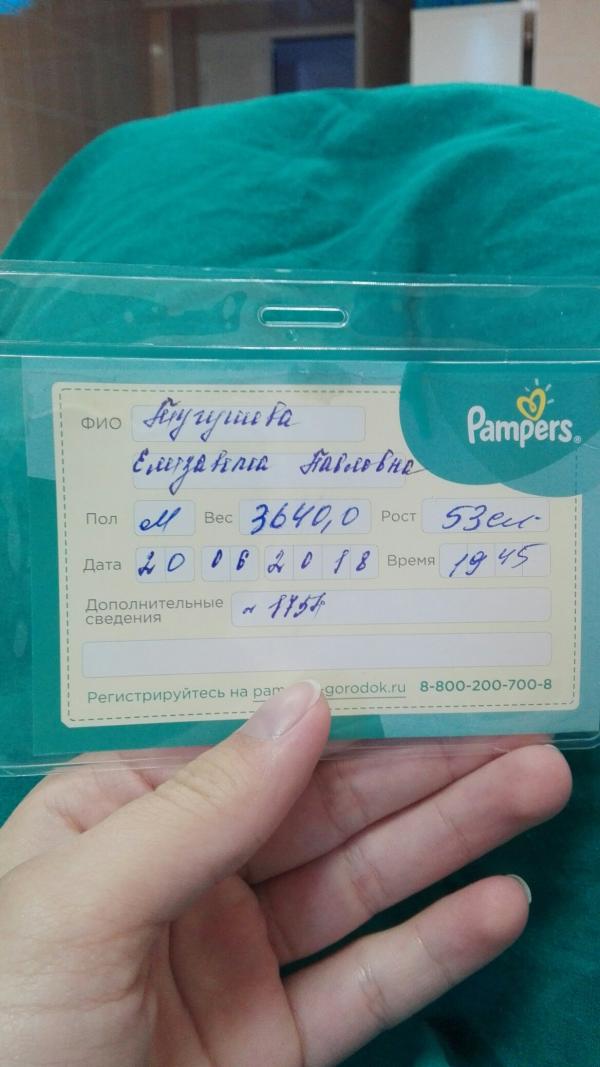 Pampers®
ФИО Тугушева
Елизавета Павловна
Пол м Вес 3640,0 Рост 53см
Дата 20 06 2018 Время 19 45
Дополнительные
сведения
Регистрируйтесь на gorodok.ru 8-800-200-700-8